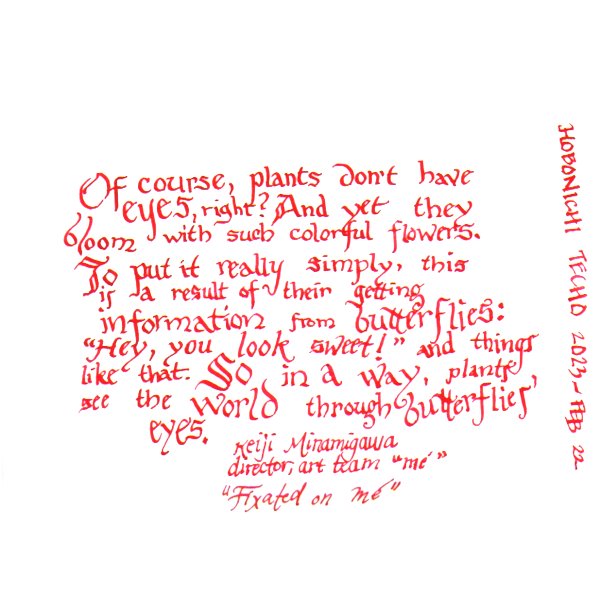 Of course, plants don't have
eyes, right? And yet they
bloom with such colorful flowers.
To put it really simply, this
is a result of their getting
information from butterflies:
"Hey, you look sweet!" and things
like that. So in a way, plants
see the world through butterflies'
eyes.
Keiji Minamigawa
director, art team "mé"
"Fixated on mé"
HOBONICHI TECHO 2023 - FEB 22